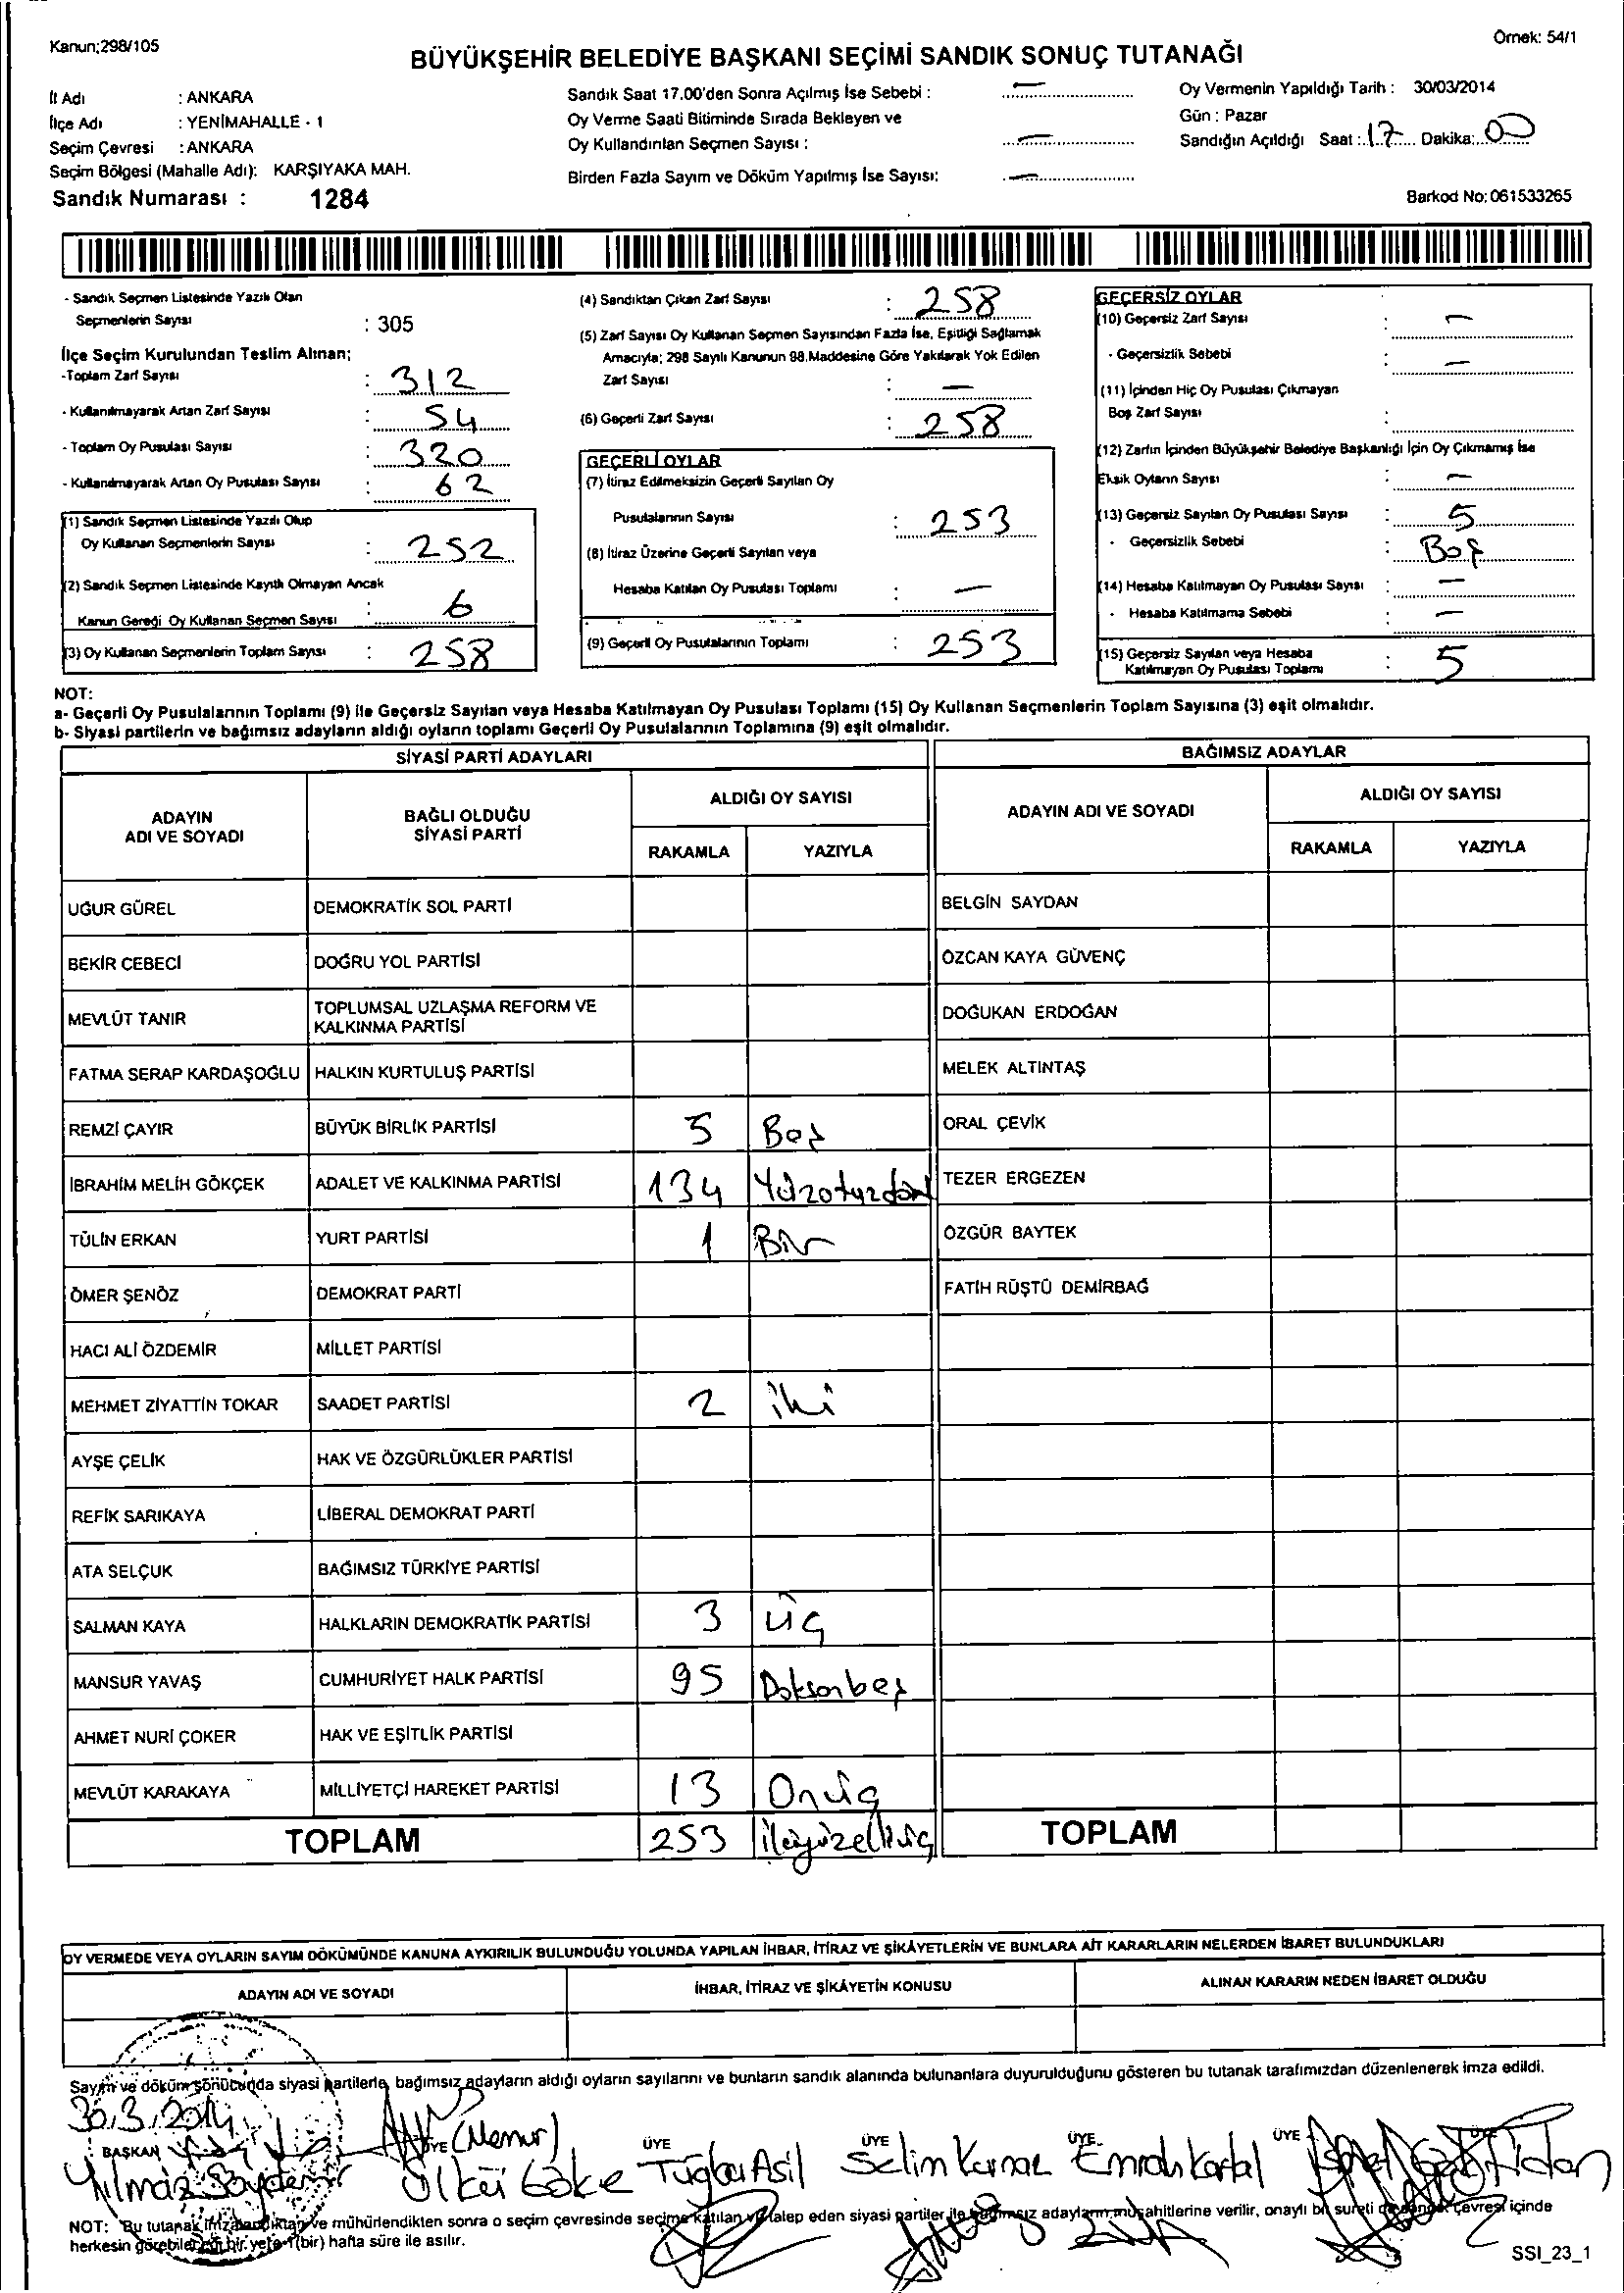 Kanun;298/105
Örnek: 54/1
BÜYÜKŞEHİR BELEDİYE BAŞKANI SEÇİMİ SANDIK SONUÇ TUTANAĞI
İl Adı : ANKARA
İlçe Adı : YENİMAHALLE - 1
Seçim Çevresi : ANKARA
Seçim Bölgesi (Mahalle Adı): KARŞIYAKA MAH.
Sandık Numarası : 1284
Sandık Saat 17.00'den Sonra Açılmış İse Sebebi : —
Oy Verme Saati Bitiminde Sırada Bekleyen ve
Oy Kullandırılan Seçmen Sayısı : —
Birden Fazla Sayım ve Döküm Yapılmış İse Sayısı: —
Oy Vermenin Yapıldığı Tarih : 30/03/2014
Gün : Pazar
Sandığın Açıldığı Saat : 17 Dakika: 00
Barkod No: 061533265
- Sandık Seçmen Listesinde Yazılı Olan
Seçmenlerin Sayısı : 305
İlçe Seçim Kurulundan Teslim Alınan;
-Toplam Zarf Sayısı : 312
- Kullanılmayarak Artan Zarf Sayısı : 54
- Toplam Oy Pusulası Sayısı : 320
- Kullanılmayarak Artan Oy Pusulası Sayısı : 62
(1) Sandık Seçmen Listesinde Yazılı Olup
Oy Kullanan Seçmenlerin Sayısı : 252
(2) Sandık Seçmen Listesinde Kayıtlı Olmayan Ancak
Kanun Gereği Oy Kullanan Seçmen Sayısı : 6
(3) Oy Kullanan Seçmenlerin Toplam Sayısı : 258
(4) Sandıktan Çıkan Zarf Sayısı : 258
(5) Zarf Sayısı Oy Kullanan Seçmen Sayısından Fazla İse, Eşitliği Sağlamak
Amacıyla; 298 Sayılı Kanunun 98.Maddesine Göre Yakılarak Yok Edilen
Zarf Sayısı : —
(6) Geçerli Zarf Sayısı : 258
GEÇERLİ OYLAR
(7) İtiraz Edilmeksizin Geçerli Sayılan Oy
Pusulalarının Sayısı : 253
(8) İtiraz Üzerine Geçerli Sayılan veya
Hesaba Katılan Oy Pusulası Toplamı : —
(9) Geçerli Oy Pusulalarının Toplamı : 253
GEÇERSİZ OYLAR
(10) Geçersiz Zarf Sayısı : —
- Geçersizlik Sebebi : —
(11) İçinden Hiç Oy Pusulası Çıkmayan
Boş Zarf Sayısı :
(12) Zarfın İçinden Büyükşehir Belediye Başkanlığı İçin Oy Çıkmamış İse
Eksik Oyların Sayısı : —
(13) Geçersiz Sayılan Oy Pusulası Sayısı : 5
- Geçersizlik Sebebi : Boş
(14) Hesaba Katılmayan Oy Pusulası Sayısı : —
- Hesaba Katılmama Sebebi : —
(15) Geçersiz Sayılan veya Hesaba
Katılmayan Oy Pusulası Toplamı : 5
NOT:
a- Geçerli Oy Pusulalarının Toplamı (9) ile Geçersiz Sayılan veya Hesaba Katılmayan Oy Pusulası Toplamı (15) Oy Kullanan Seçmenlerin Toplam Sayısına (3) eşit olmalıdır.
b- Siyasi partilerin ve bağımsız adayların aldığı oyların toplamı Geçerli Oy Pusulalarının Toplamına (9) eşit olmalıdır.
SİYASİ PARTİ ADAYLARI
BAĞIMSIZ ADAYLAR
ADAYIN
ADI VE SOYADI
BAĞLI OLDUĞU
SİYASİ PARTİ
ALDIĞI OY SAYISI
RAKAMLA YAZIYLA
ADAYIN ADI VE SOYADI
ALDIĞI OY SAYISI
RAKAMLA YAZIYLA
UĞUR GÜREL DEMOKRATİK SOL PARTİ BELGİN SAYDAN
BEKİR CEBECİ DOĞRU YOL PARTİSİ ÖZCAN KAYA GÜVENÇ
MEVLÜT TANIR TOPLUMSAL UZLAŞMA REFORM VE
KALKINMA PARTİSİ DOĞUKAN ERDOĞAN
FATMA SERAP KARDAŞOĞLU HALKIN KURTULUŞ PARTİSİ MELEK ALTINTAŞ
REMZİ ÇAYIR BÜYÜK BİRLİK PARTİSİ 5 Beş ORAL ÇEVİK
İBRAHİM MELİH GÖKÇEK ADALET VE KALKINMA PARTİSİ 134 Yüzotuzdört TEZER ERGEZEN
TÜLİN ERKAN YURT PARTİSİ 1 Bir ÖZGÜR BAYTEK
ÖMER ŞENÖZ DEMOKRAT PARTİ FATİH RÜŞTÜ DEMİRBAĞ
HACI ALİ ÖZDEMİR MİLLET PARTİSİ
MEHMET ZİYATTİN TOKAR SAADET PARTİSİ 2 iki
AYŞE ÇELİK HAK VE ÖZGÜRLÜKLER PARTİSİ
REFİK SARIKAYA LİBERAL DEMOKRAT PARTİ
ATA SELÇUK BAĞIMSIZ TÜRKİYE PARTİSİ
SALMAN KAYA HALKLARIN DEMOKRATİK PARTİSİ 3 üç
MANSUR YAVAŞ CUMHURİYET HALK PARTİSİ 95 Doksanbeş
AHMET NURİ ÇOKER HAK VE EŞİTLİK PARTİSİ
MEVLÜT KARAKAYA MİLLİYETÇİ HAREKET PARTİSİ 13 Onüç
TOPLAM 253 ikiyüzelliüç TOPLAM
OY VERMEDE VEYA OYLARIN SAYIM DÖKÜMÜNDE KANUNA AYKIRILIK BULUNDUĞU YOLUNDA YAPILAN İHBAR, İTİRAZ VE ŞİKÂYETLERİN VE BUNLARA AİT KARARLARIN NELERDEN İBARET BULUNDUKLARI
ADAYIN ADI VE SOYADI İHBAR, İTİRAZ VE ŞİKÂYETİN KONUSU ALINAN KARARIN NEDEN İBARET OLDUĞU
Sayım ve döküm sonucunda siyasi partilerle, bağımsız adayların aldığı oyların sayılarını ve bunların sandık alanında bulunanlara duyurulduğunu gösteren bu tutanak tarafımızdan düzenlenerek imza edildi.
30.3.2014
BAŞKAN ÜYE (Memur) ÜYE ÜYE ÜYE ÜYE
Yılmaz Ülkü Göke Tuğba Asil Selim Emrah Kartal
NOT: Bu tutanak imzalandıktan ve mühürlendikten sonra o seçim çevresinde seçime katılan ve talep eden siyasi partiler ile bağımsız adayların müşahitlerine verilir, onaylı bir sureti de sandık çevresi içinde
herkesin görebileceği bir yere 1(bir) hafta süre ile asılır.
SSI_23_1